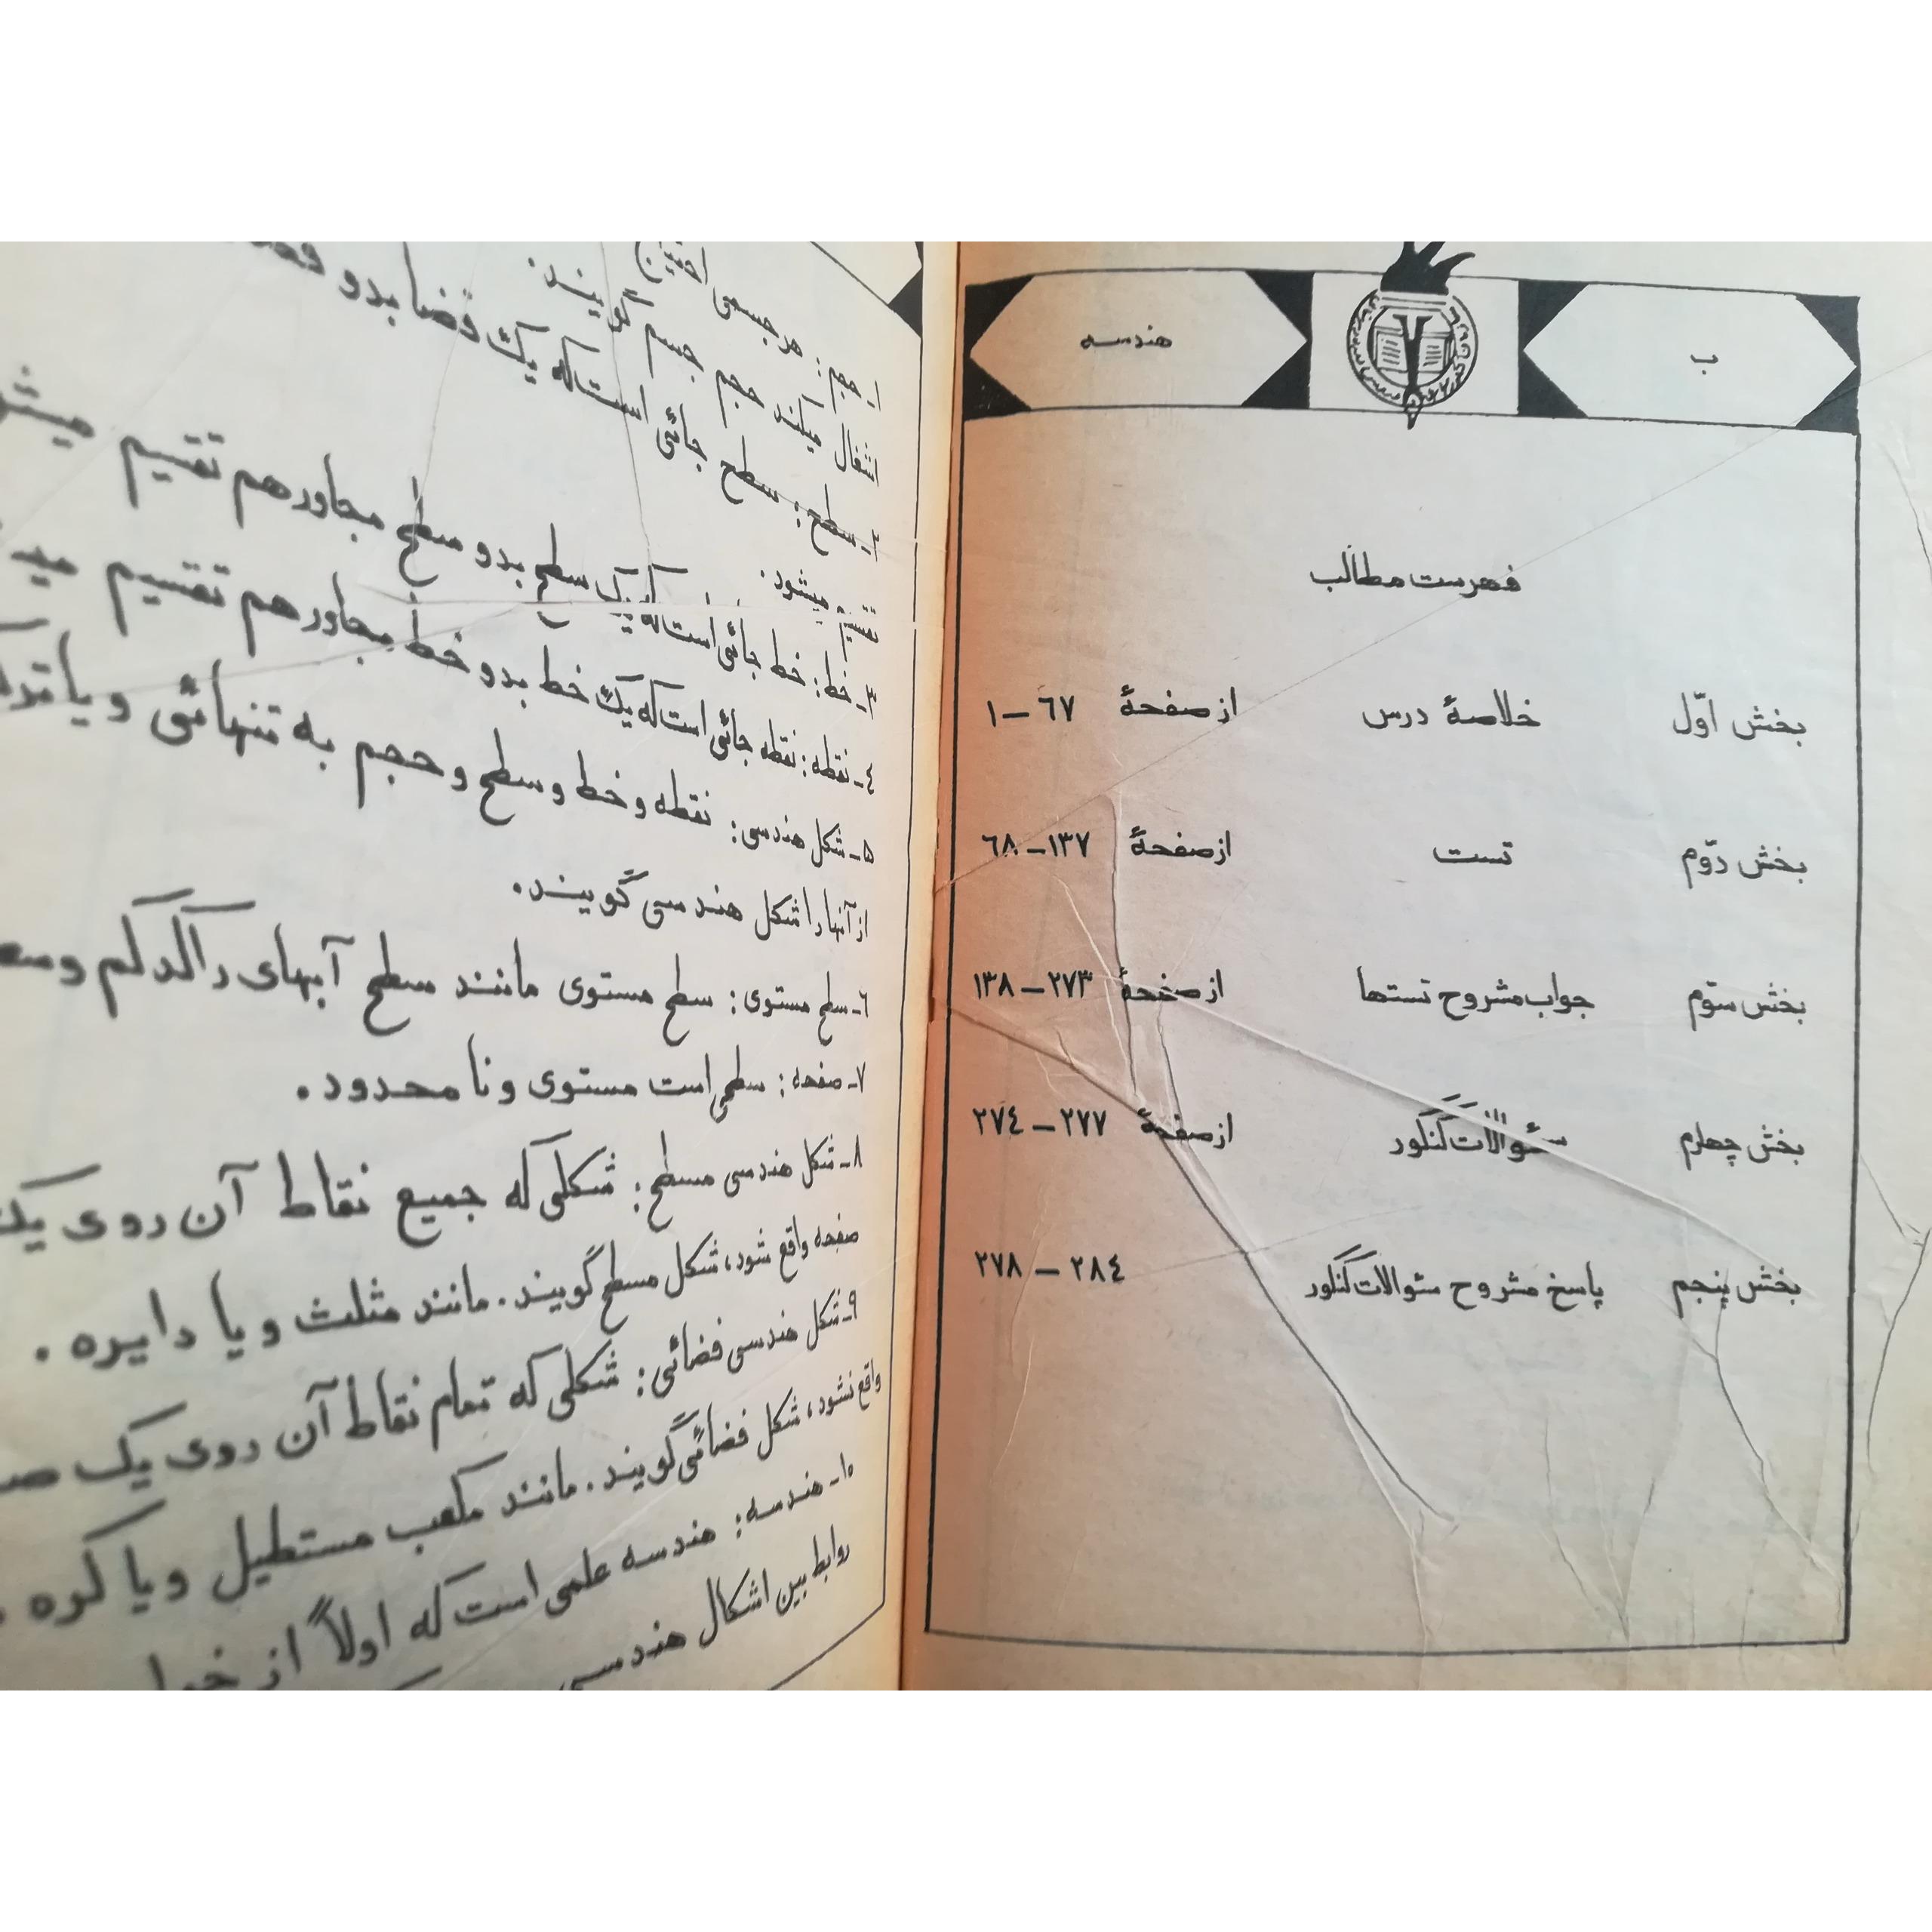 ب
هندسه
فهرست مطالب
بخش اوّل خلاصهٔ درس از صفحهٔ ۶۷ – ۱
بخش دوّم تست از صفحهٔ ۱۳۷ – ۶۸
بخش سوّم جواب مشروح تستها از صفحهٔ ۲۷۳ – ۱۳۸
بخش چهارم سئوالات کنکور از صفحهٔ ۲۷۷ – ۲۷۴
بخش پنجم پاسخ مشروح سئوالات کنکور ۲۸۴ – ۲۷۸
۱ـ حجم: هر جسمی
اشغال میکند حجم جسم گویند.
۲ـ سطح: سطح جائی است که یک فضا بدو
تقسیم میشود.
۳ـ خط: خط جائی است که یک سطح بدو سطح مجاور هم تقسیم
۴ـ نقطه: نقطه جائی است که یک خط بدو خط مجاور هم تقسیم
۵ـ شکل هندسی: نقطه و خط و سطح و حجم به تنهائی و یا
از آنها را شکل هندسی گویند.
۶ـ سطح مستوی: سطح مستوی مانند سطح آبهای راکد کم
۷ـ صفحه: سطحی است مستوی و نا محدود.
۸ـ شکل هندسی مسطح: شکلی که جمیع نقاط آن روی یک
صفحه واقع شود، شکل مسطح گویند. مانند مثلث و یا دایره.
۹ـ شکل هندسی فضائی: شکلی که تمام نقاط آن روی یک
واقع نشود، شکل فضائی گویند. مانند مکعب مستطیل و یا کره.
۱۰ـ هندسه: هندسه علمی است که اولاً از
روابط بین اشکال هندسی